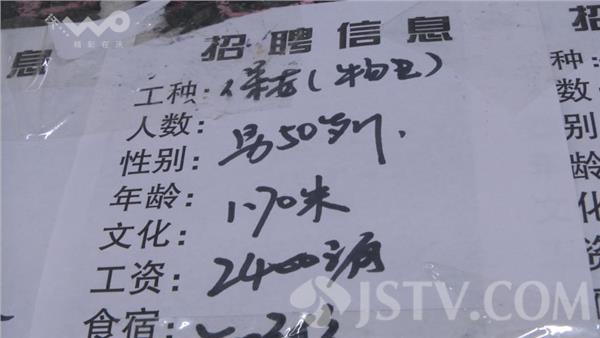 精彩在沃
息
招聘信息
种:
工种: 保安(物卫)
数:
人数:
别
性别: 男50岁以下.
龄
年龄:
化
文化: 1.70米
资
工资: 2400
食宿:
JSTV.COM